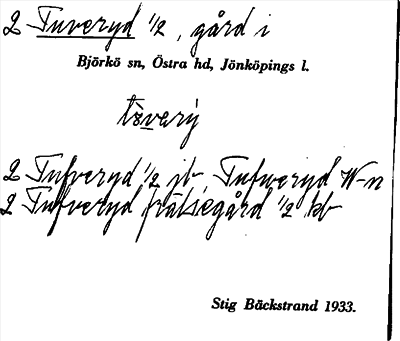 2 Tuveryd 1/2, gård i
Björkö sn, Östra hd, Jönköpings l.
tŭvarý
2 Tufveryd 1/2 jb, Tufweryd W-n
2 Tufveryd frälsegård 1/2 kb
Stig Bäckstrand 1933.